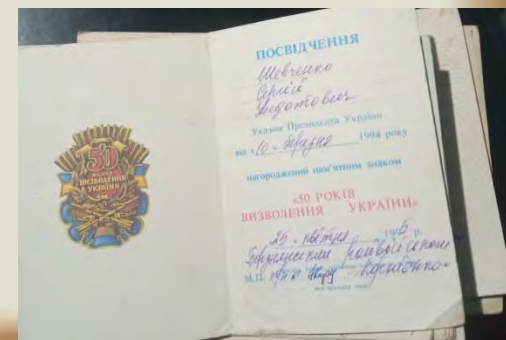 50
РОКІВ
ВИЗВОЛЕННЯ
УКРАЇНИ
ПОСВІДЧЕННЯ
Шевченко
Сергій
Указом Президента України
від «10» березня 1994 року
нагороджений пам'ятним знаком
«50 РОКІВ
ВИЗВОЛЕННЯ УКРАЇНИ»
25 квітня 1995 р.
райвійськком
М.П.